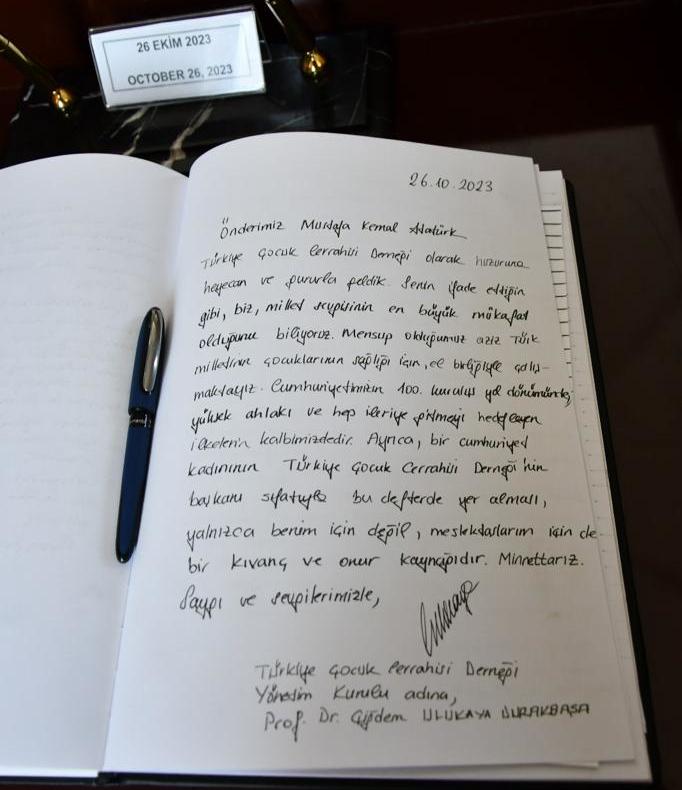 26 EKİM 2023
OCTOBER 26, 2023
26.10.2023
Önderimiz Mustafa Kemal Atatürk
Türkiye Çocuk Cerrahisi Derneği olarak huzuruna
heyecan ve gururla geldik. Senin ifade ettiğin
gibi, biz, millet sevgisinin en büyük mükafat
olduğunu biliyoruz. Mensup olduğumuz aziz Türk
milletinin çocuklarının sağlığı için, el birliğiyle çalış-
maktayız. Cumhuriyetimizin 100. kuruluş yıl dönümünde,
yüksek ahlakı ve hep ileriye gitmeyi hedefleyen
ilkelerin kalbimizdedir. Ayrıca, bir cumhuriyet
kadınının Türkiye Çocuk Cerrahisi Derneği'nin
başkanı sıfatıyla bu defterde yer alması,
yalnızca benim için değil, meslektaşlarım için de
bir kıvanç ve onur kaynağıdır. Minnettarız.
Saygı ve sevgilerimizle,
Türkiye Çocuk Cerrahisi Derneği
Yönetim Kurulu adına,
Prof. Dr. Çiğdem ULUKAYA DURAKBAŞA